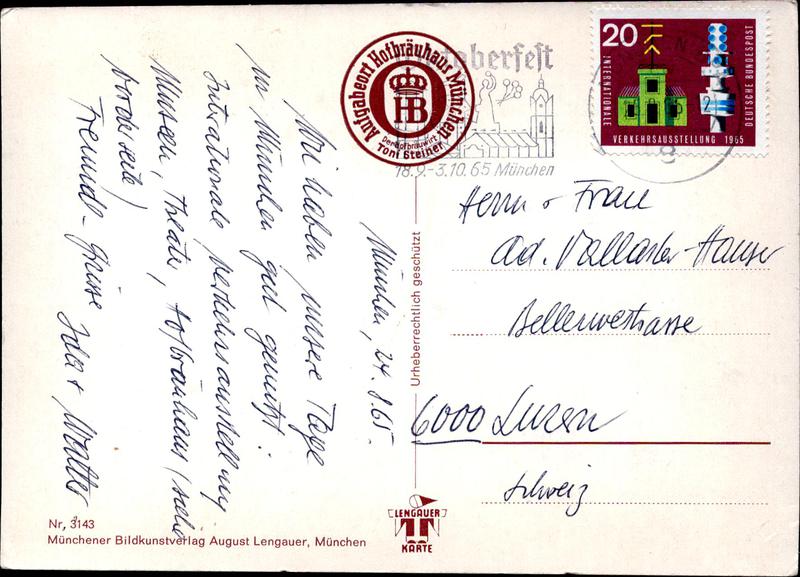 München, 24. 8. 65.
Wir haben unsere Tage
in München gut genützt:
Internationale Verkehrsausstellung
Museen, Theater, Hofbräuhaus (siehe
Vorderseite)
Freundl. Grüsse Ida + Walter
Aufgabeort Hofbräuhaus München
HB
Der Hofbräuwirt
Toni Steiner
Oktoberfest
18.9.-3.10.65 München
20
INTERNATIONALE
VERKEHRSAUSSTELLUNG 1965
DEUTSCHE BUNDESPOST
Herrn + Frau
Ad. Vallaster-Hauser
Bellerivestrasse
6000 Luzern
Schweiz
Urheberrechtlich geschützt
LENGAUER
KARTE
Nr. 3143
Münchener Bildkunstverlag August Lengauer, München